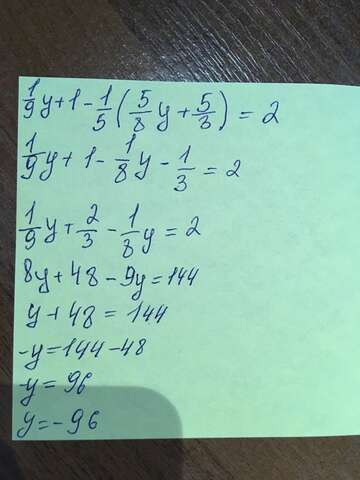 1/9y+1-1/5(5/8y+5/3)=2
1/9y+1-1/8y-1/3=2
1/9y+2/3-1/8y=2
8y+48-9y=144
y+48=144
-y=144-48
-y=96
y=-96